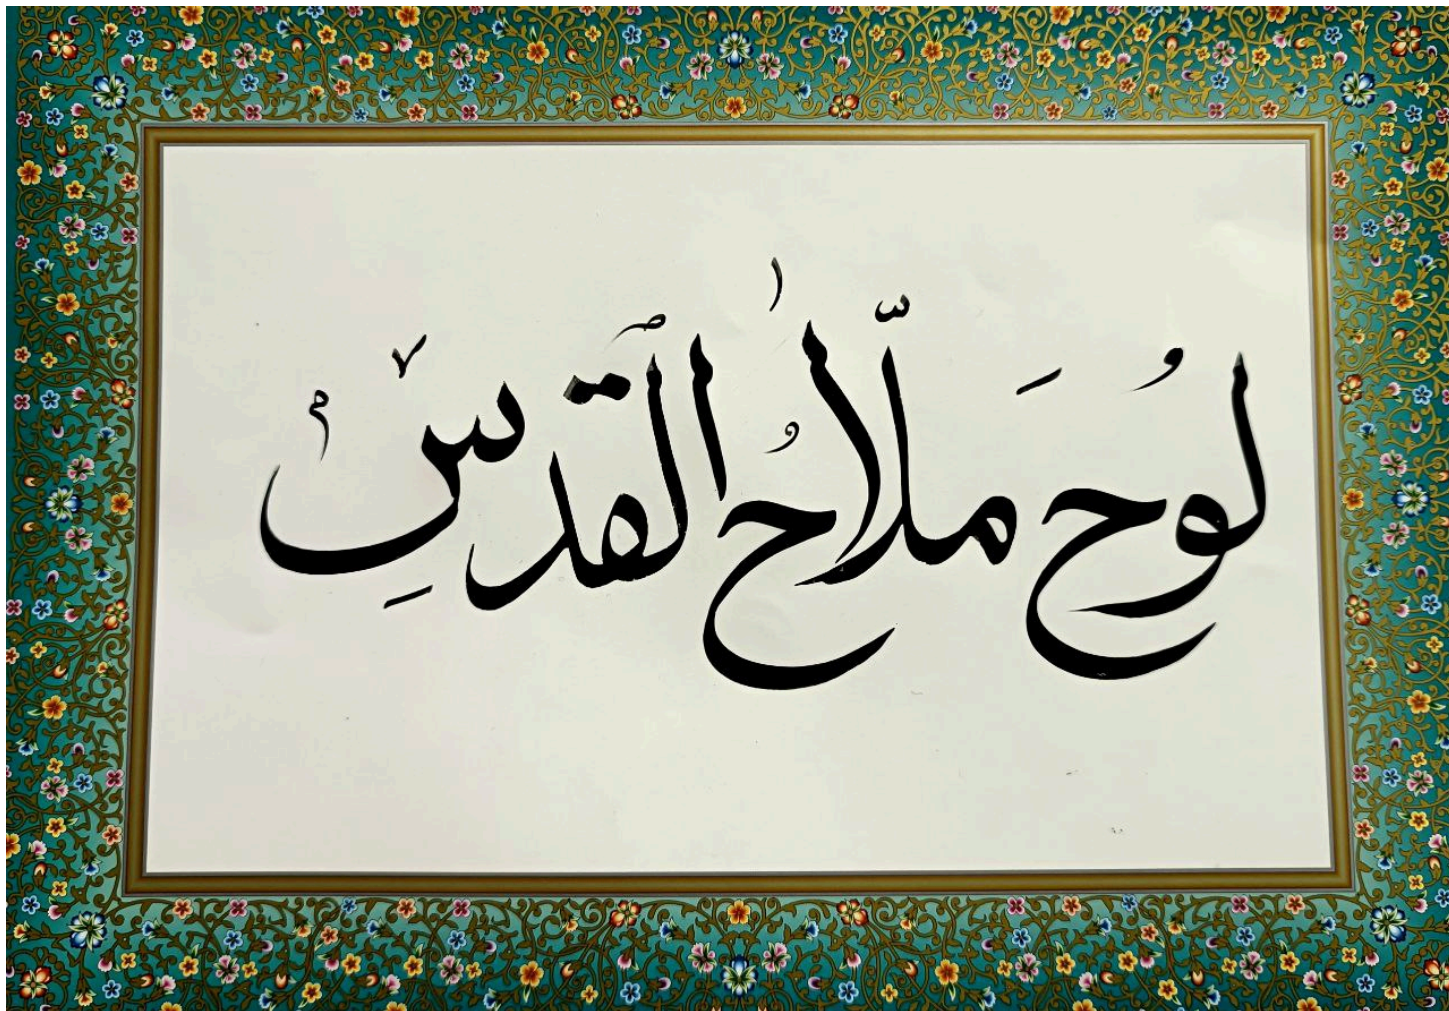 لُوح مَلّاحُ القُدسِ